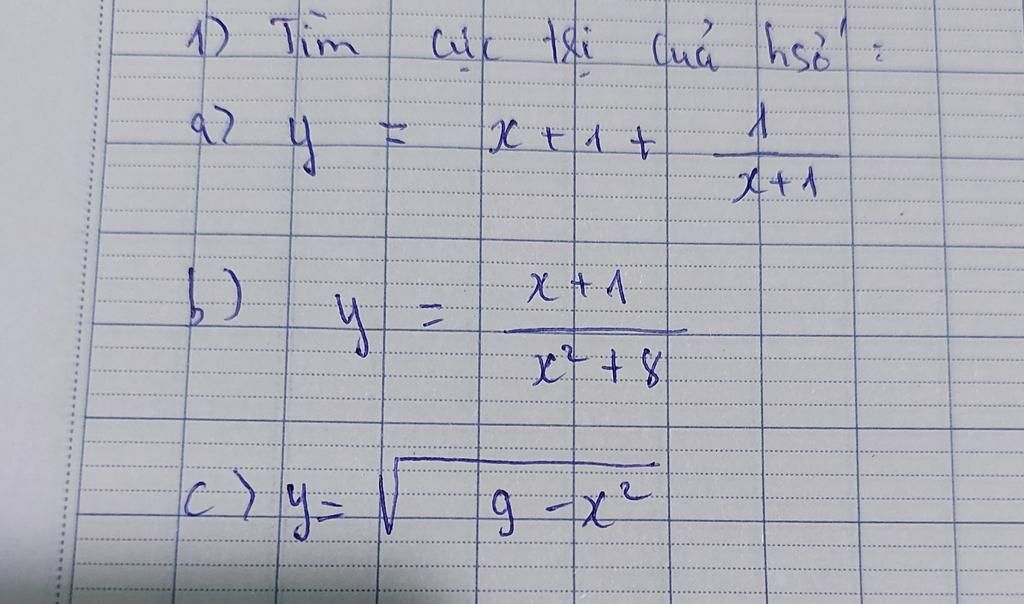 1) Tìm cực trị của hsố :
a) y = x + 1 + \frac{1}{x+1}
b) y = \frac{x+1}{x²+8}
c) y = \sqrt{9-x²}